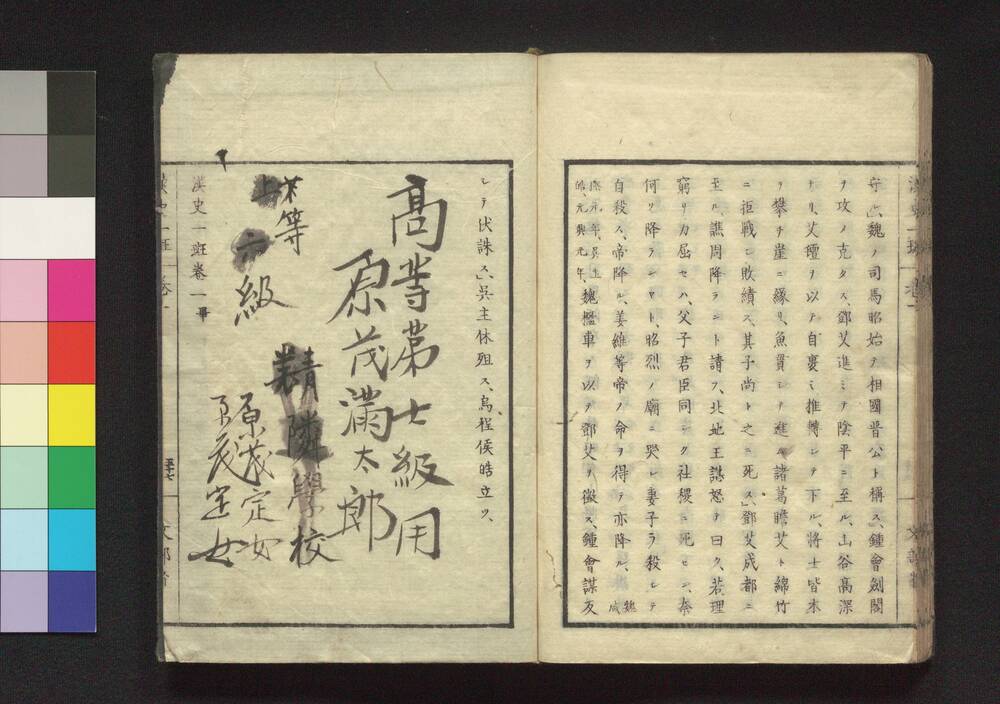 守ル、魏ノ司馬昭始テ相國晋公ト稱ス、鍾會劍閣
ヲ攻ノ克タス、鄧艾進ミテ陰平ニ至ル、山谷高深
ナリ、艾氊ヲ以テ自裹ミ推轉シテ下ル、將士皆木
ヲ攀チ崖ニ緣リ、魚貫シテ進ム、諸葛瞻艾ト綿竹
ニ拒戰シ敗績ス、其子尚ト之ニ死ス、鄧艾成都ニ
至ル、譙周降ラント請フ、北地王諶怒テ曰ク、若理
窮リカ屈セハ、父子君臣同シク社稷ニ死セン、奈
何ソ降ランヤト、昭烈ノ廟ニ哭シ妻子ヲ殺シテ
自殺ス、帝降ル、姜維等帝ノ命ヲ得テ亦降ル、魏咸
熈元年、吳主
皓、元興元年、魏檻車ヲ以テ鄧艾ヲ徵ス、鍾會謀反
シテ伏誅ス、吳主休殂ス、烏程侯皓立ツ、
高等第七級用
原茂滿太郎
上等
六級
精隣學校
原茂定女
漢史一班卷一
漢史一班 卷一
五十七
文部省